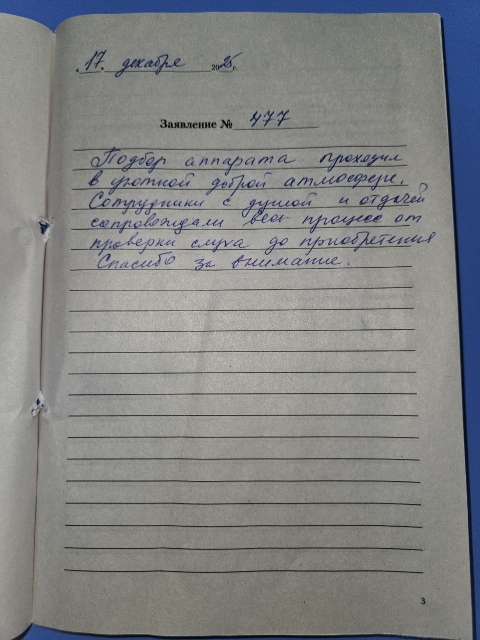 „17" декабря 2025г.
Заявление № 477
Подбор аппарата проходил
в уютной доброй атмосфере.
Сотрудники с душой и отдачей
сопровождали весь процесс от
проверки слуха до приобретения
Спасибо за внимание.
3